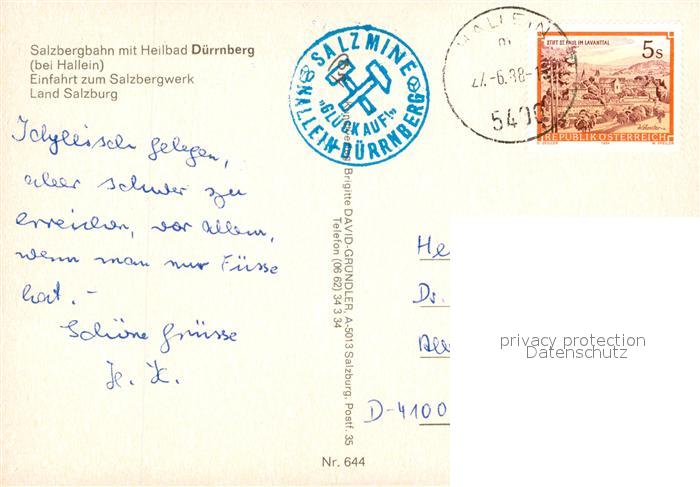 Salzbergbahn mit Heilbad Dürrnberg
(bei Hallein)
Einfahrt zum Salzbergwerk
Land Salzburg
Idyllisch gelegen,
aber schwer zu
erreichen, vor allem,
wenn man nur Füsse
hat. –
Schöne Grüsse
SALZMINE
„GLÜCKAUF!"
HALLEIN-DÜRRNBERG
Brigitte DAVID-GRÜNDLER, A-5013 Salzburg, Postf. 35
Telefon (06 62) 34 3 34
Nr. 644
HALLEIN
5400
STIFT ST. PAUL IM LAVANTTAL
5s
REPUBLIK ÖSTERREICH
He
Dr.
D-4100
privacy protection
Datenschutz